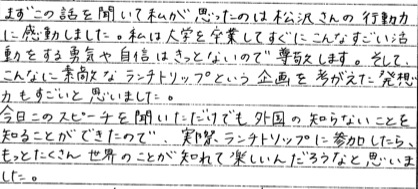 まずこの話を聞いて私が思ったのは松沢さんの行動力
に感動しました。私は大学を卒業してすぐにこんなすごい活
動をする勇気や自信はきっとないので尊敬します。そして、
こんなに素敵なランチトリップという企画を考がえた発想
力もすごいと思いました。
今日このスピーチを聞いただけでも外国の知らないことを
知ることができたので、実際、ランチトリップに参加したら、
もっとたくさん世界のことが知れて楽しいんだろうなと思いま
した。